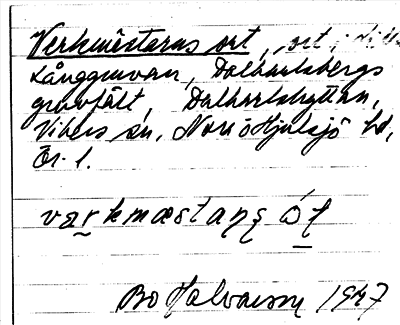 Verkmästarns ort, ort i
Långgruvan, Dalkarlsbergs
gruvfält, Dalkarlshyttan,
Vikers sn, Nora o Hjulsjö bd,
Ör. l.
Bo Halvarson 1947